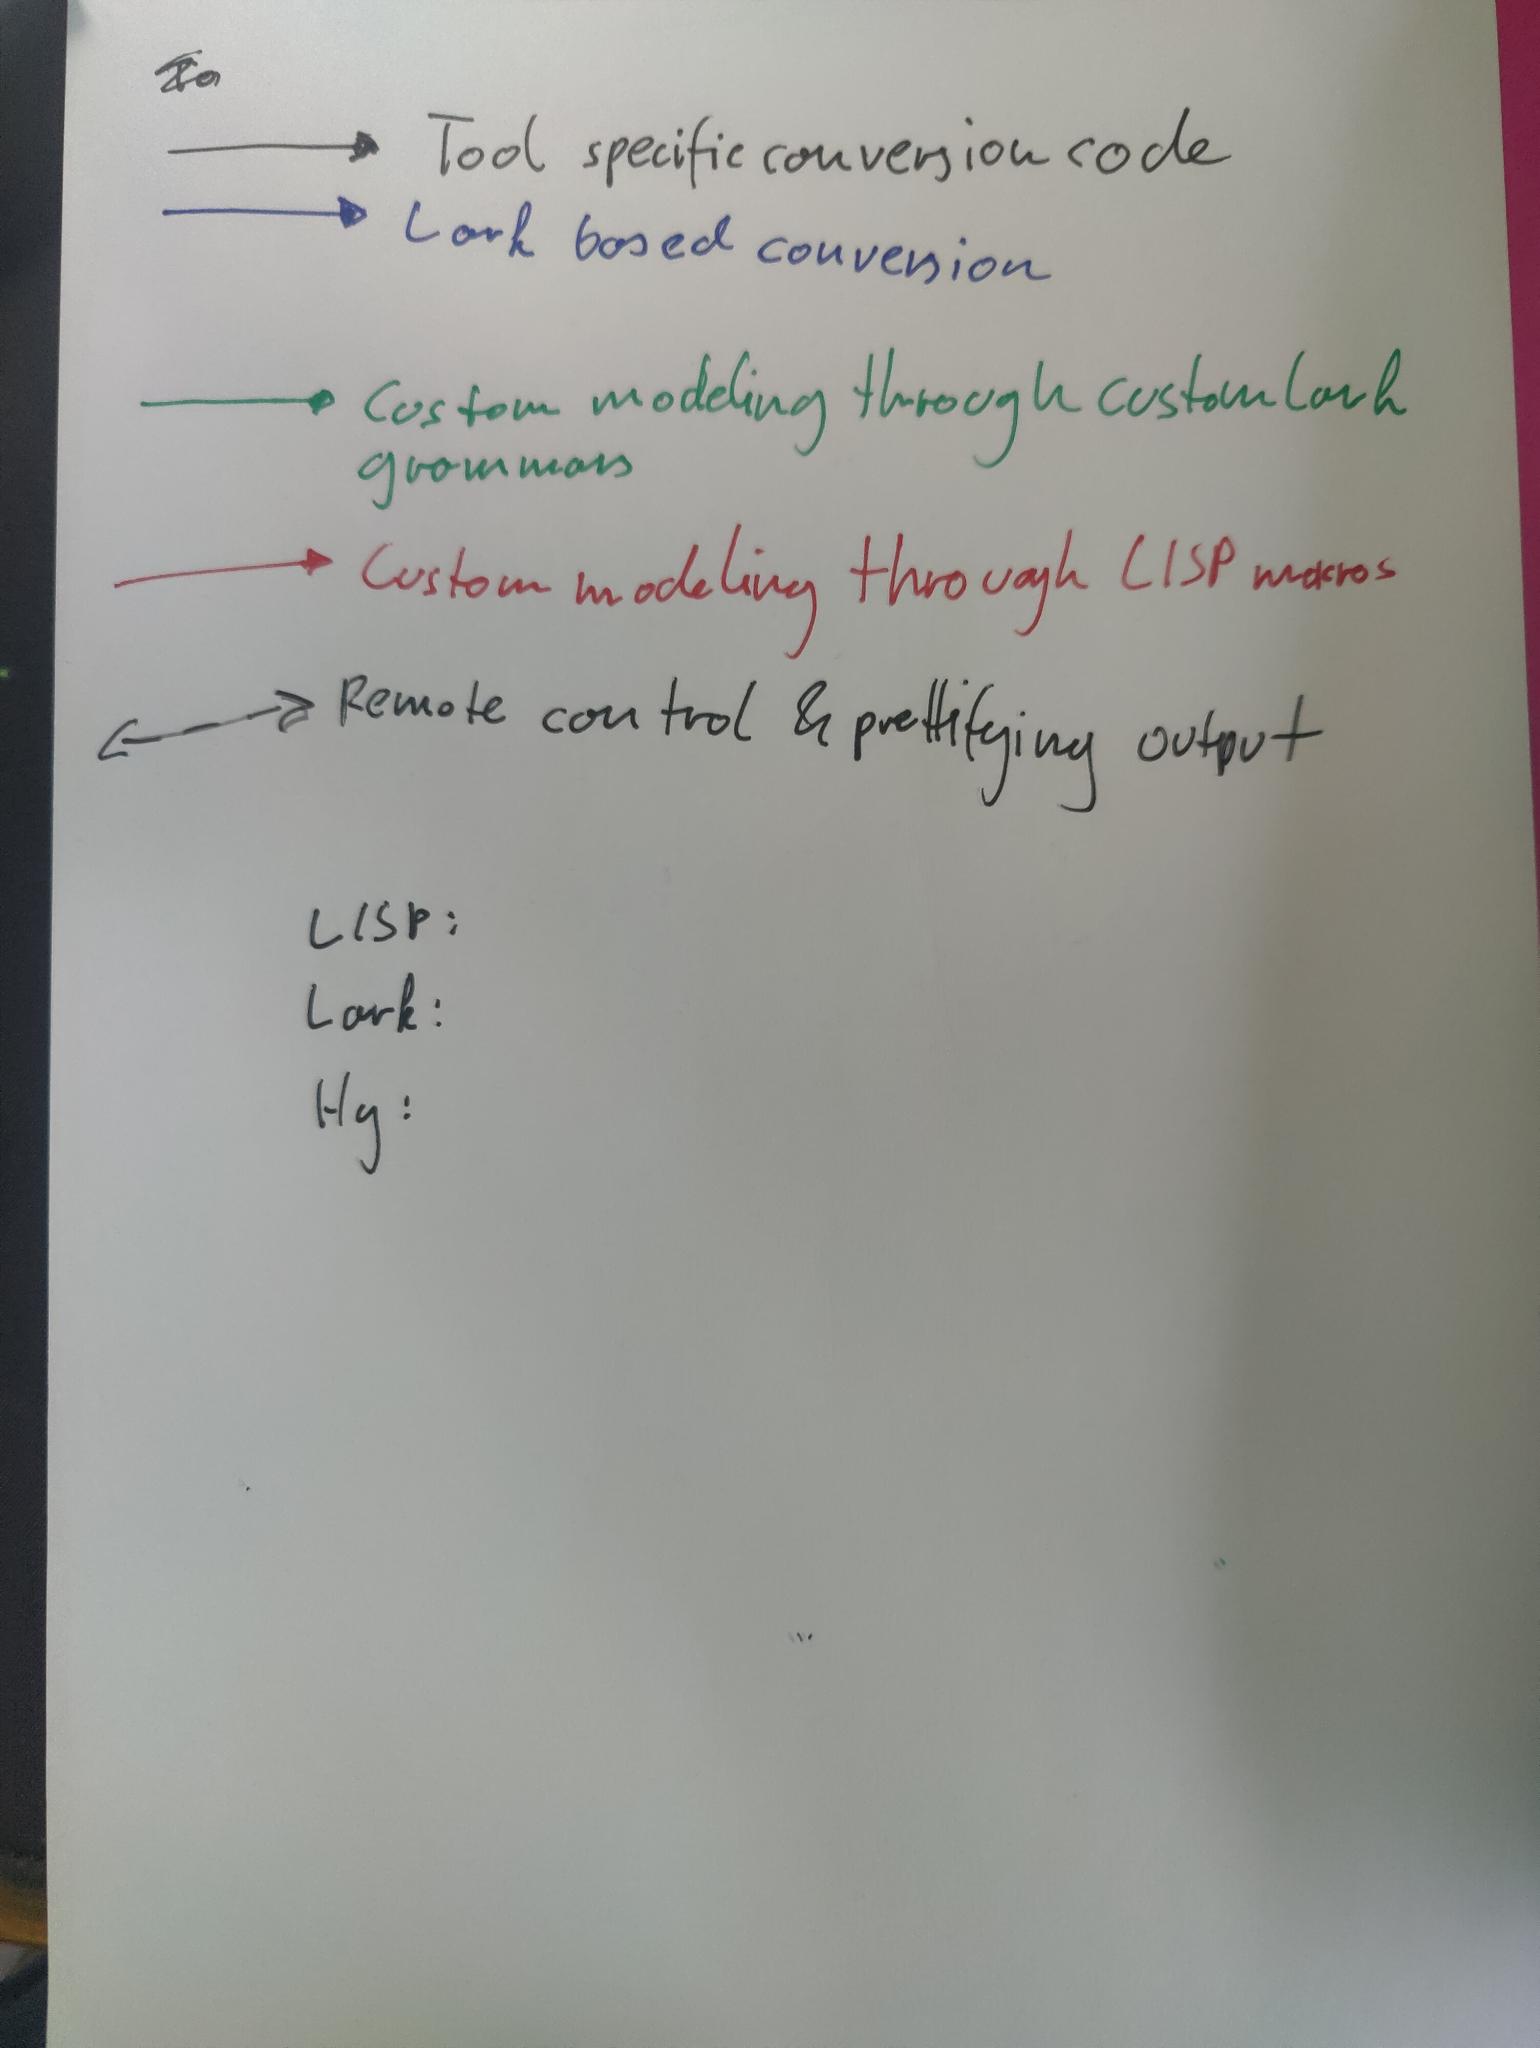 Tool specific conversion code
Lark based conversion
Custom modeling through custom Lark
grammars
Custom modeling through LISP macros
Remote control & prettifying output
LISP:
Lark:
Hy: